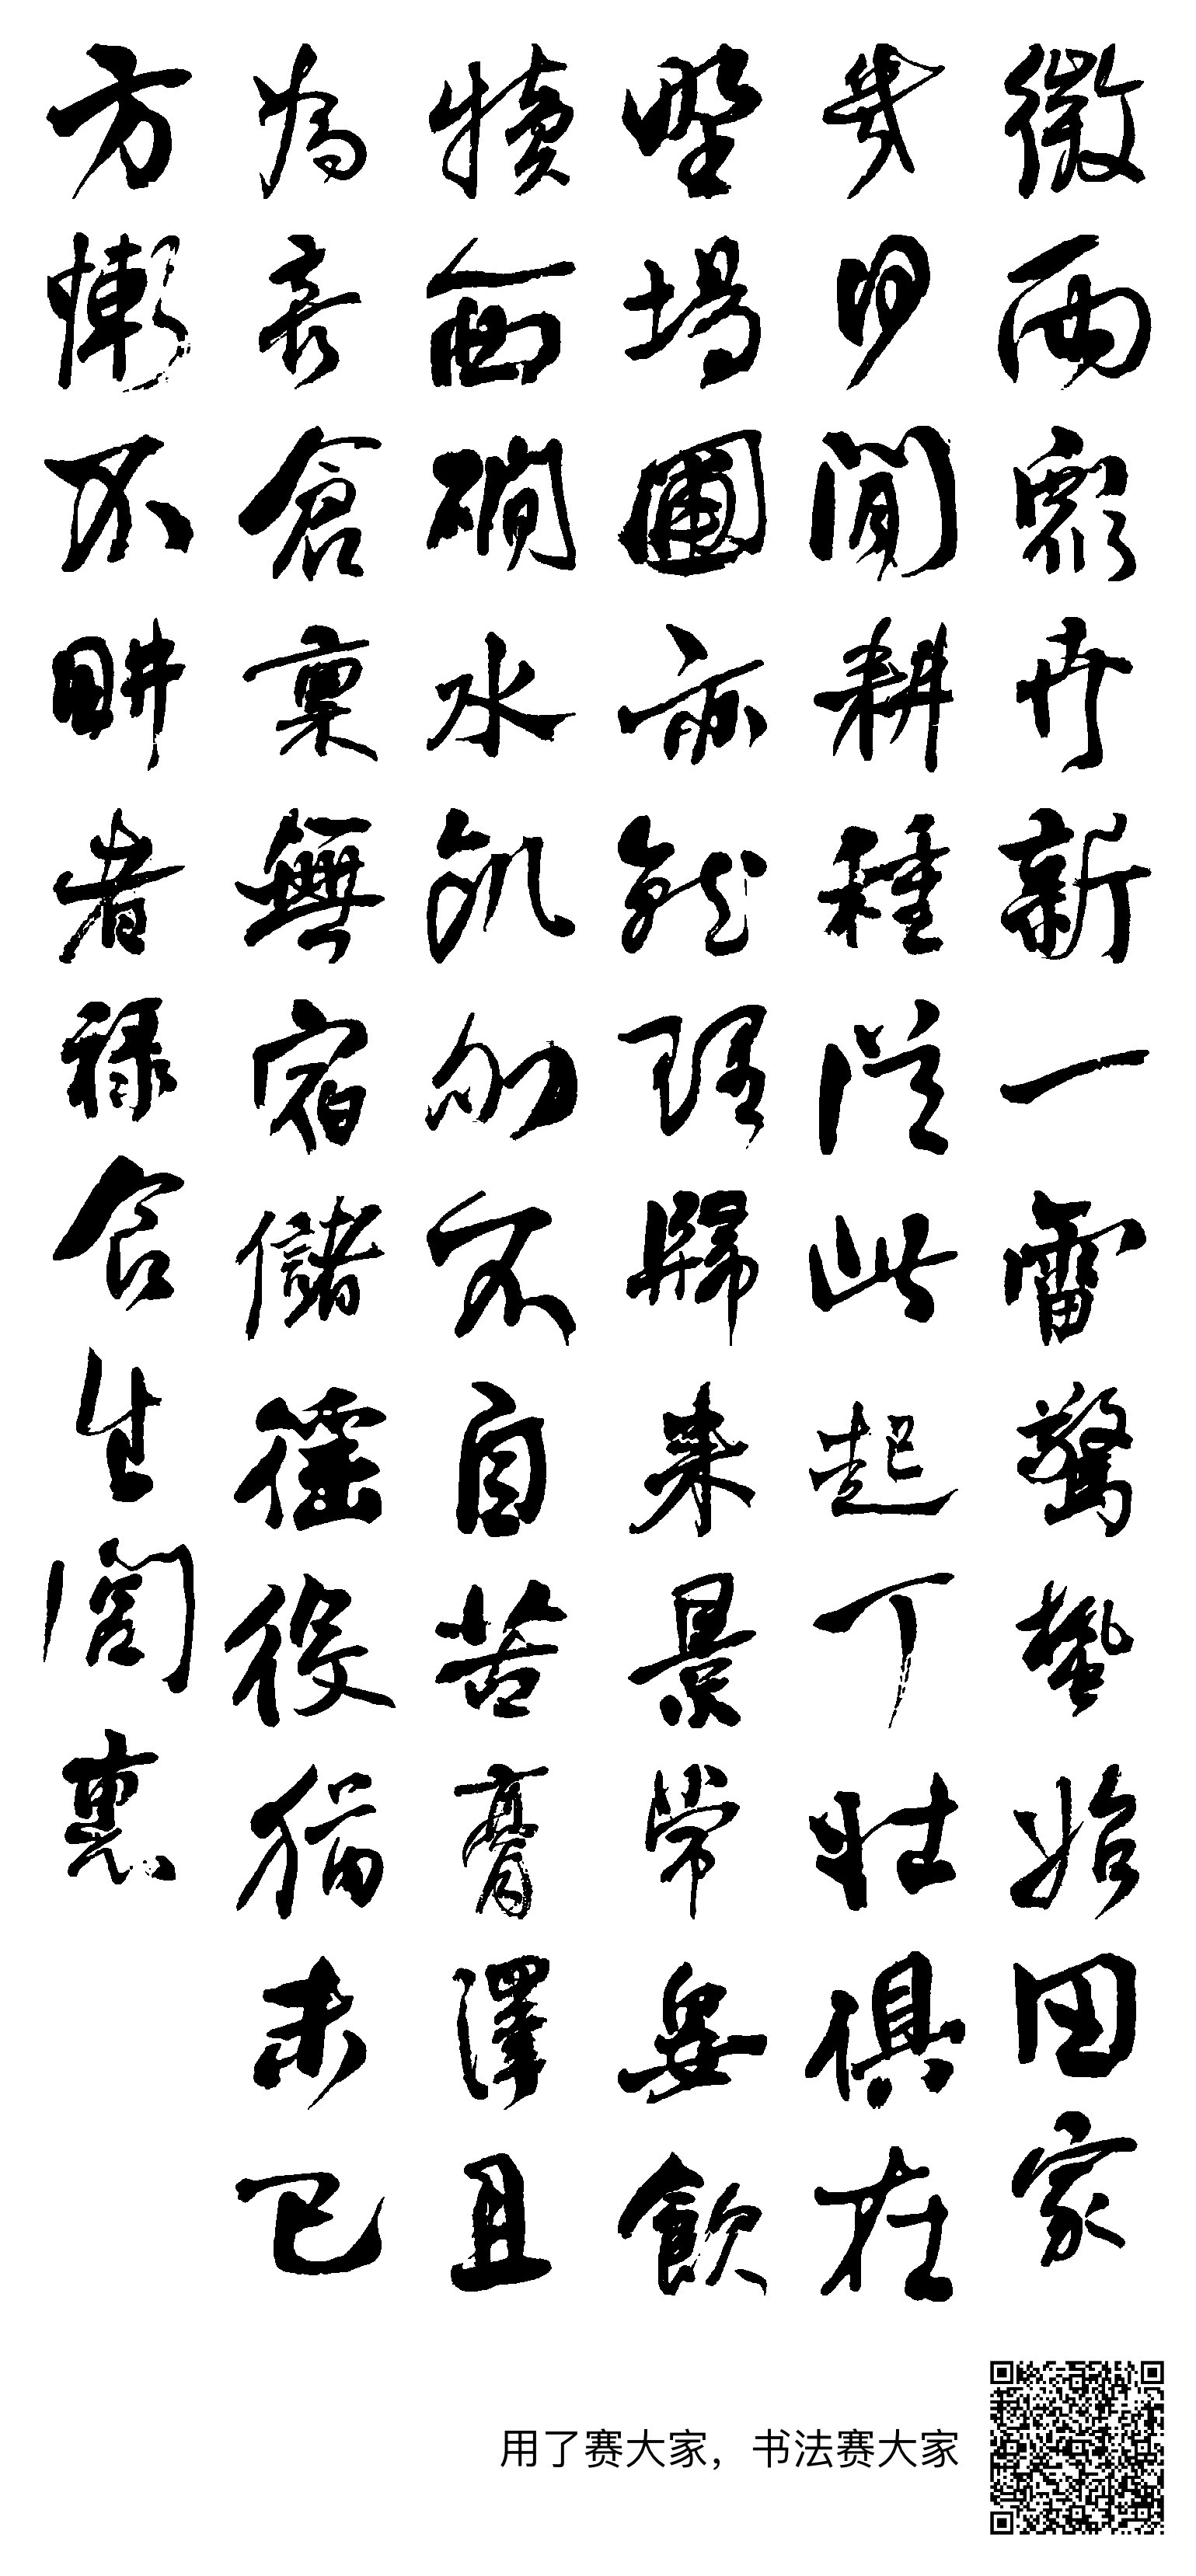 微雨眾卉新一雷驚蟄始田家
幾日閒耕種從此起丁壯俱在
野場圃亦就理歸來景常晏飲
犢西澗水飢劬不自苦膏澤且
為喜倉稟無宿儲徭役猶未已
方慚不耕者祿食出閭里
用了赛大家，书法赛大家